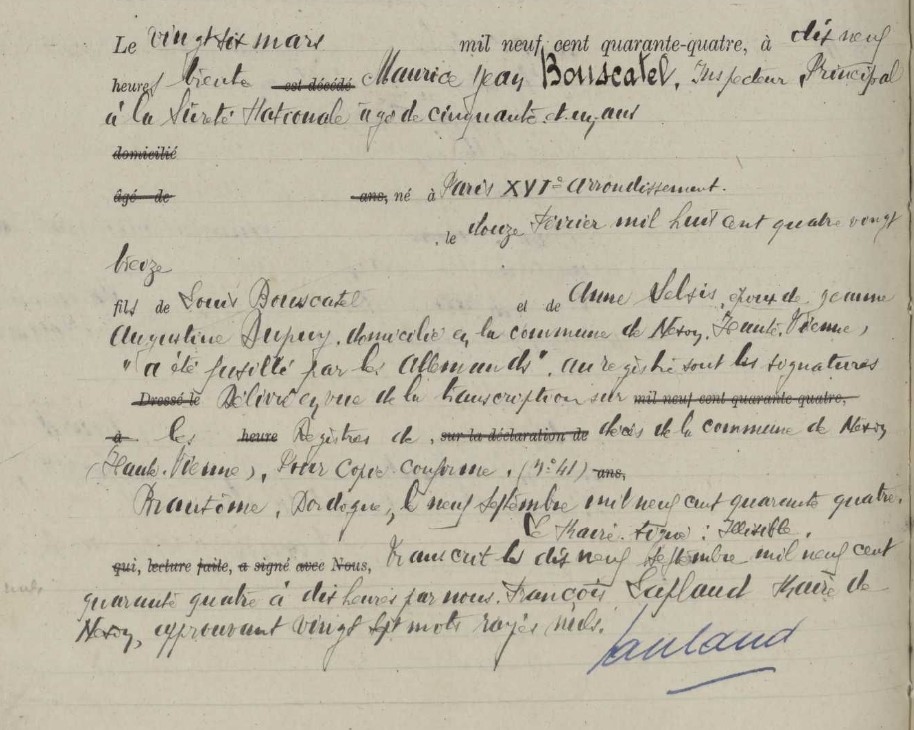 Le vingt six mars mil neuf cent quarante-quatre, à dix neuf
heures trente est décédé Maurice Jean Bouscatel, Inspecteur Principal
à la Sûreté Nationale âgé de cinquante et un ans
domicilié
âgé de ans, né à Paris XVIe arrondissement.
, le douze Février mil huit cent quatre vingt
treize
fils de Louis Bouscatel et de Anne Selsis, époux de Jeanne
Augustine Dupuy, domicilié en la commune de Nexon, Haute Vienne,
"a été fusillé par les Allemands". au registre sont les signatures
Dressé le Délivré en vue de la transcription sur mil neuf cent quarante quatre,
à les heure Registres de, sur la déclaration de décès de la commune de Nexon
(Haute-Vienne), Pour Copie Conforme. (N° 41) ans,
Brantôme, Dordogne, le neuf Septembre mil neuf cent quarante quatre.
Le Maire. signé : Illisible.
qui, lecture faite, a signé avec Nous, Transcrit le dix neuf Septembre mil neuf cent
quarante quatre à dix heures par nous. François Maire de
Nexon, approuvant vingt sept mots rayés nuls.